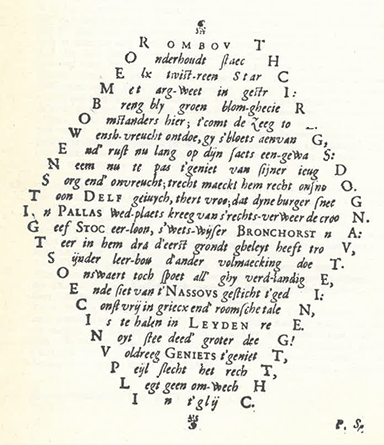 R OMBOV T
O nderhoudt ſtaec H
E lx twiſt-reen Star C
M et arg-weet in geſtr I:
B reng bly groen blom-ghecie R
O mſtanders hier; t'comt de Zeeg to
W enſh-vreucht ontdoe, gy s'bloets aenvan G,
E nd' ruſt nu lang op dijn ſaets een-gewa S:
N eem nu te pas t'geniet van ſijner ieug D
S org end' onvreucht; trecht maeckt hem recht onſno O.
T oon DELF geiuych, thert vroe; dat dyne burger ſnee G
I, n PALLAS Wed-plaets kreeg van s'rechts-verweer de croo N.
G eef STOC eer-loon, s'wets-wijſer BRONCHORST n A:
T eer in hem dra d'eerſt grondt gbeleyt heeft tro V,
S ijnder leer-bou d'ander volmaecking doe T.
O nſwaert toch ſpoet all' ghy verd-landig E,
E nde ſiet van t'NASSOVS geſticht t'ged I:
C onſt vrij in griecx end' roomſche tale N,
I s te halen in LEYDEN re E.
N oyt ſtee deed' groter dee G!
V oldreeg GENIETS t'geniet T,
P eijl ſlecht het rech T,
L egt geen om-wech H
I n t'glij C.
P. Sc.